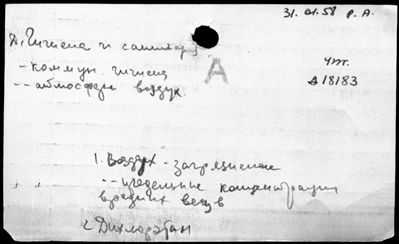 31.01.58 р. А.
Д. Гигиена и санитария
чт.
- коммун. гигиена
А
Д18183
-- атмосферн воздух
1. Воздух - загрязнение
-- предельные концентрации
вредных вещ в
2 Дихлорэтан